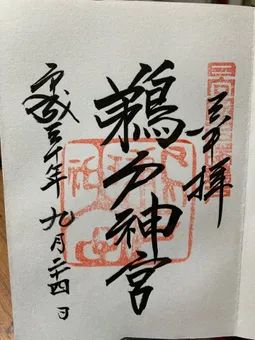 奉拝
鵜戸神宮
平成三十年 九月二十四日